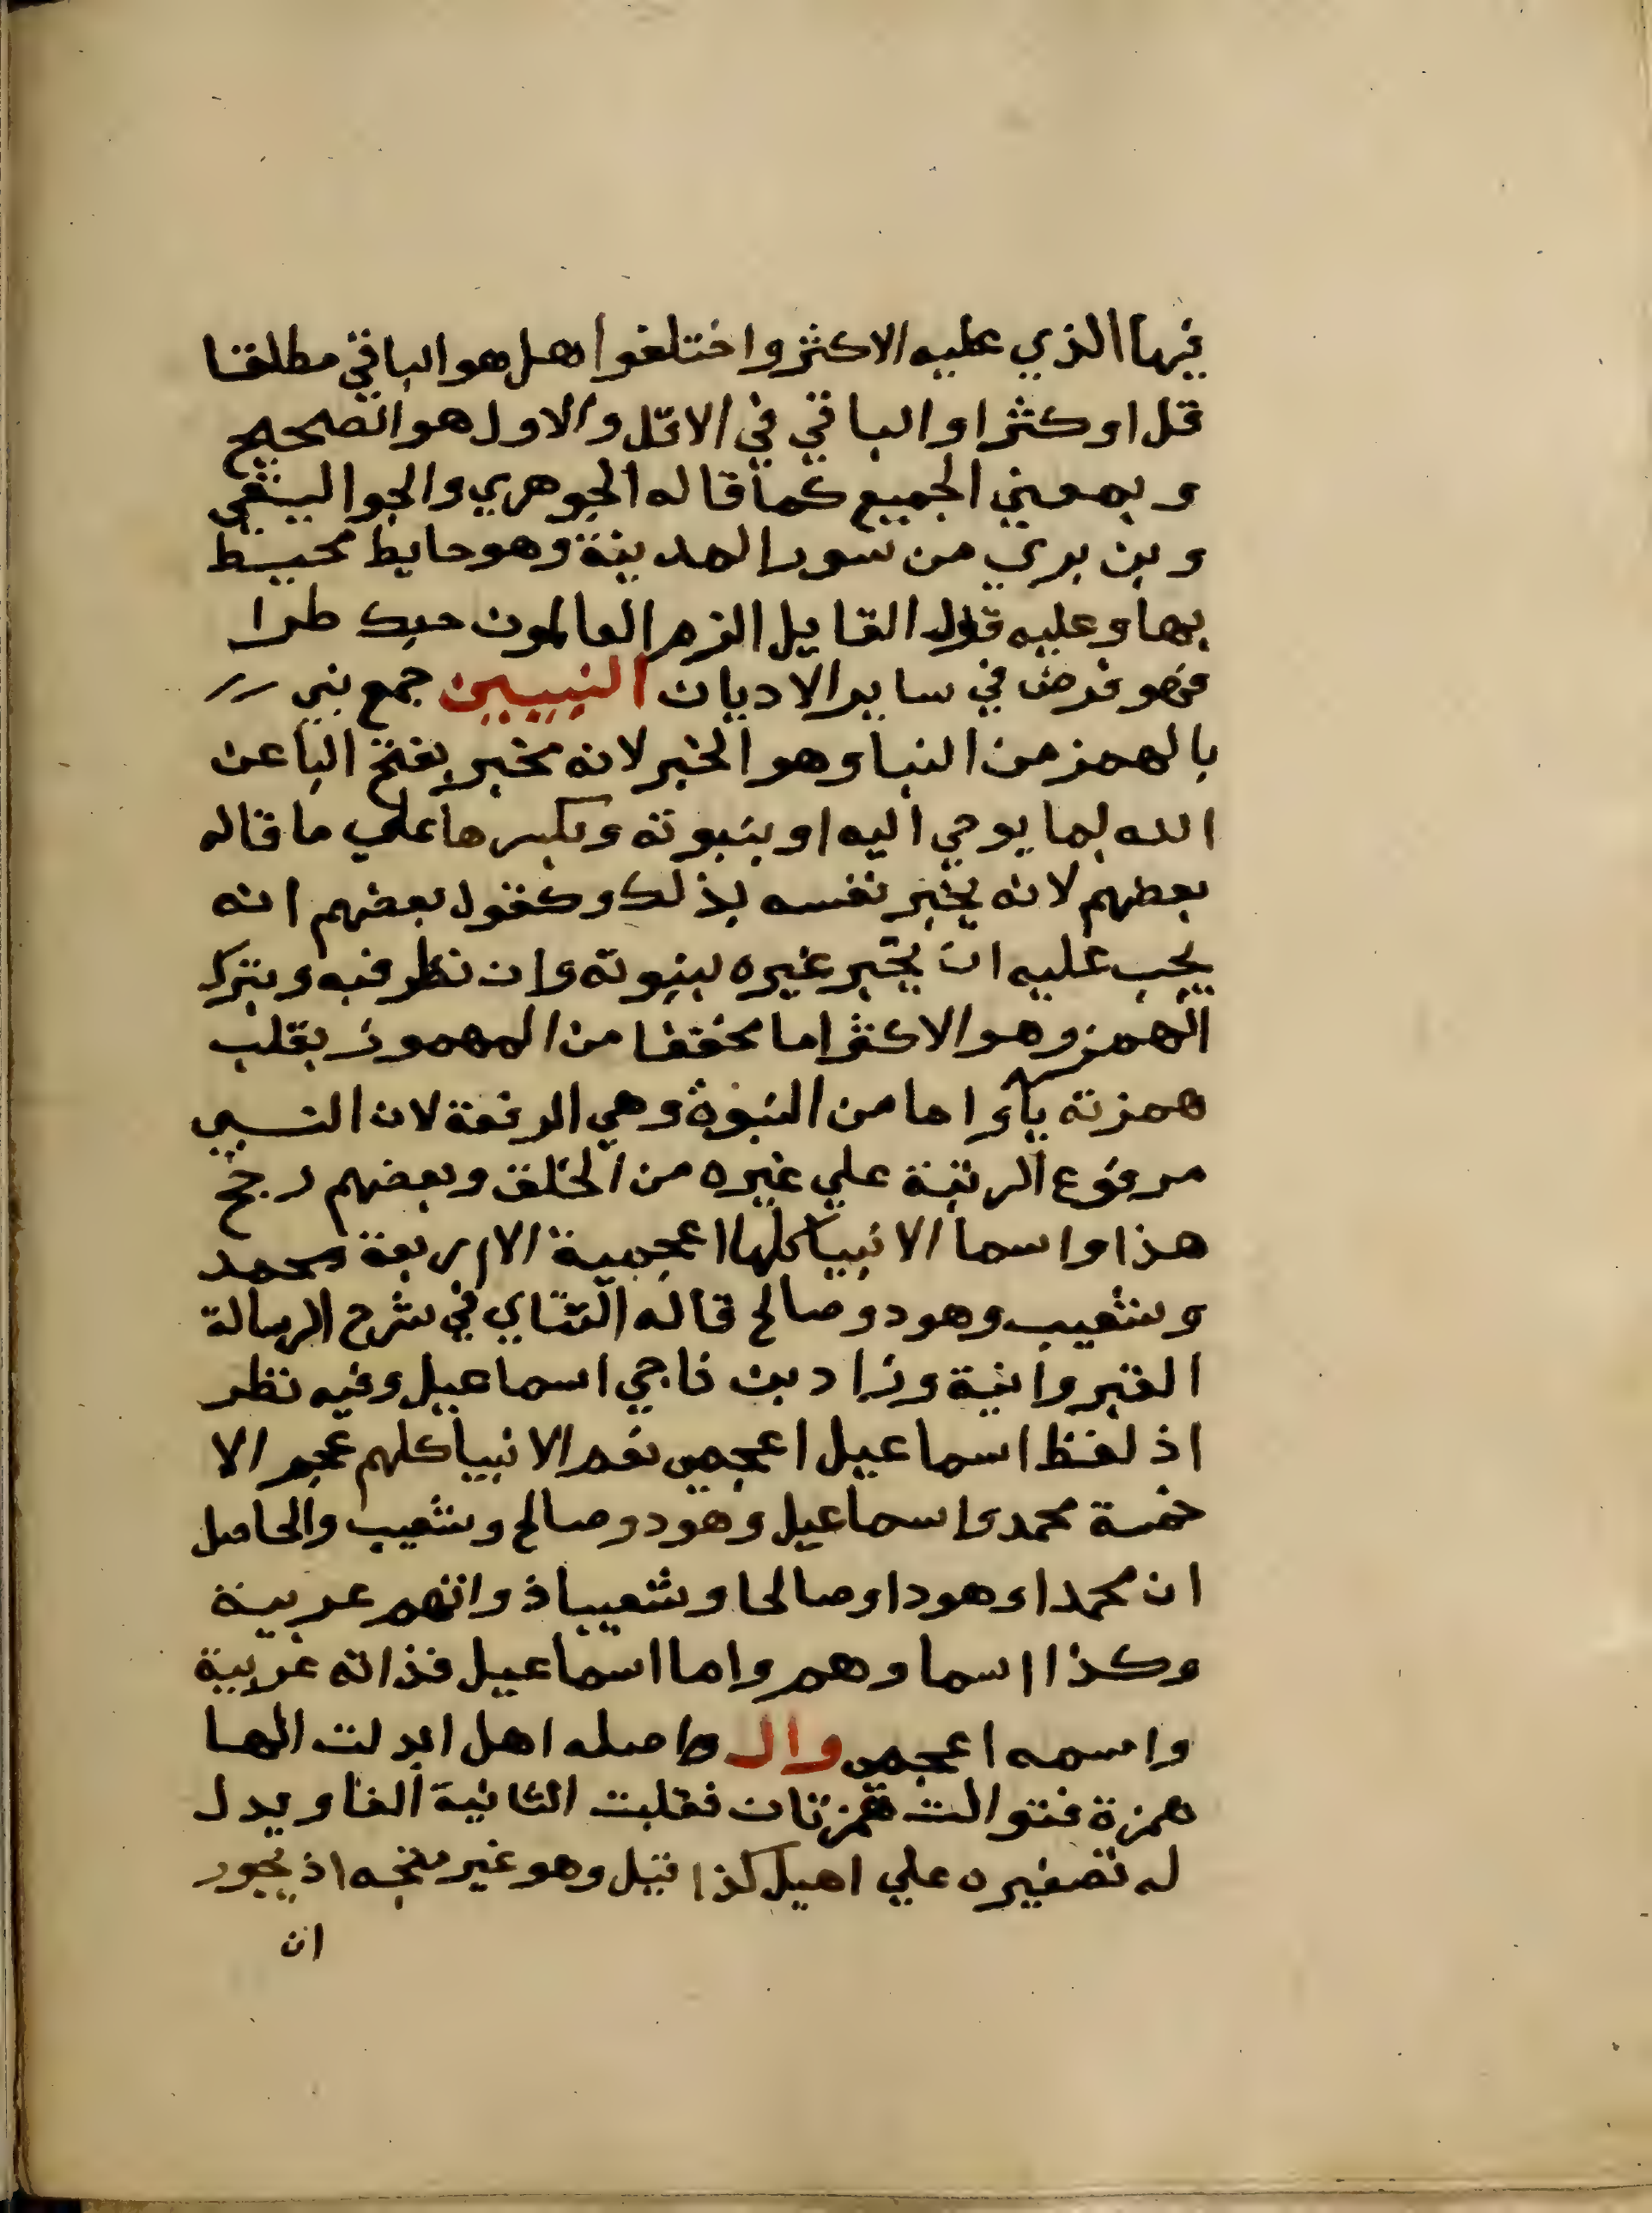 فيها الذي عليه الاكثر واختلفوا هل هو الباقي مطلقا
قل او كثر او الباقي في الاقل والاول هو الصحيح
وبمعني الجميع كما قاله الجوهري والجواليقي
وبن بري من سور المدينة وهو حايط محيط
بها وعليه قول القايل الزم العالمون حبك طرا
فهو فرض في ساير الاديان النبيين جمع نبي
بالهمز من النبا وهو الخبر لانه مخبر بفتح البا عن
الله بما يوحي اليه او بنبوته وبكسرها علي ما قاله
بعضهم لانه يخبر نفسه بذلك وكقول بعضهم انه
يجب عليه ان يخبر غيره بنبوته وان نظر فيه وبترك
الهمز وهو الاكثر اما مخففا من المهموز بقلب
همزته يا واما من النبوة وهي الرفعة لان النبي
مرفوع الرتبة علي غيره من الخلق وبعضهم رجح
هذا واسما الانبيا كلها اعجمية الا اربعة محمد
وشعيب وهود وصالح قاله التتاي في شرح الرسالة
القيروانية وزاد بن ناجي اسماعيل وفيه نظر
اذ لفظ اسماعيل اعجمي نعم الانبيا كلهم عجم الا
خمسة محمد واسماعيل وهود وصالح وشعيب والحاصل
ان محمدا وهودا وصالحا وشعيبا ذواتهم عربية
وكذا اسماوهم واما اسماعيل فذاته عربية
واسمه اعجمي وال واصله اهل ابدلت الها
همزة فتوالت همزتان فقلبت الثانية الفا ويدل
له تصغيره علي اهيل كذا قيل وهو غير متجه اذ يجوز
ان